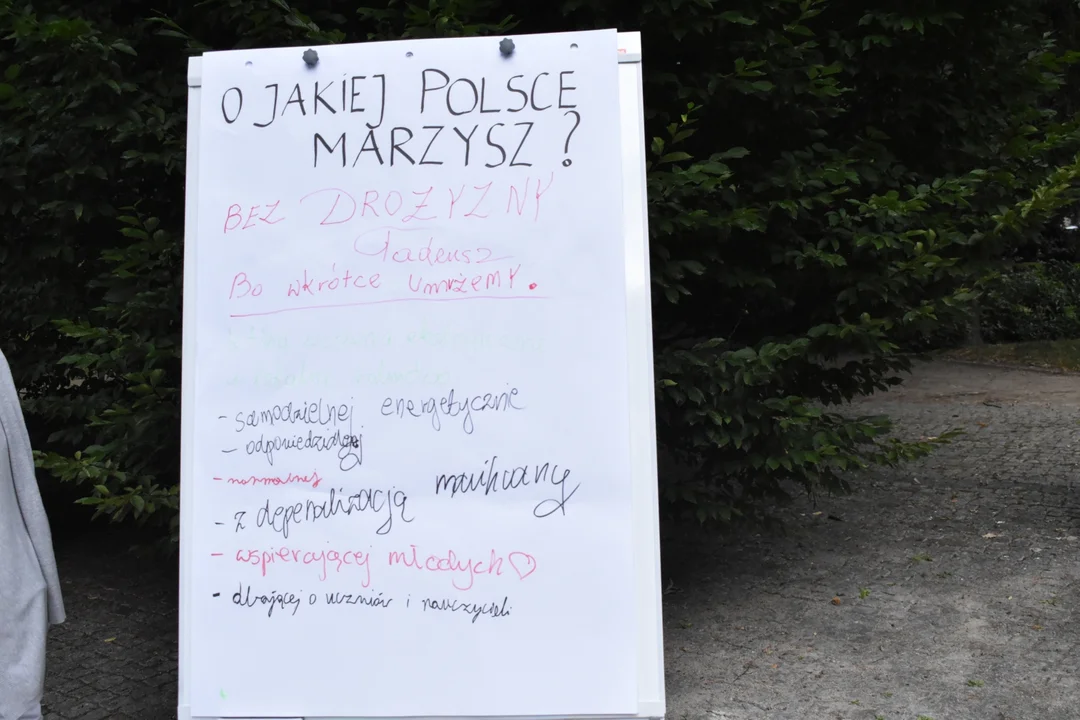 O JAKIEJ POLSCE
MARZYSZ ?
BEZ DROŻYZNY
Tadeusz
Bo wkrótce umrzemy.
- samodzielnej energetycznie
- odpowiedzialnej
- normalnej
- z depenalizacją marihuany
- wspierającej młodych ♡
- dbającej o uczniów i nauczycieli